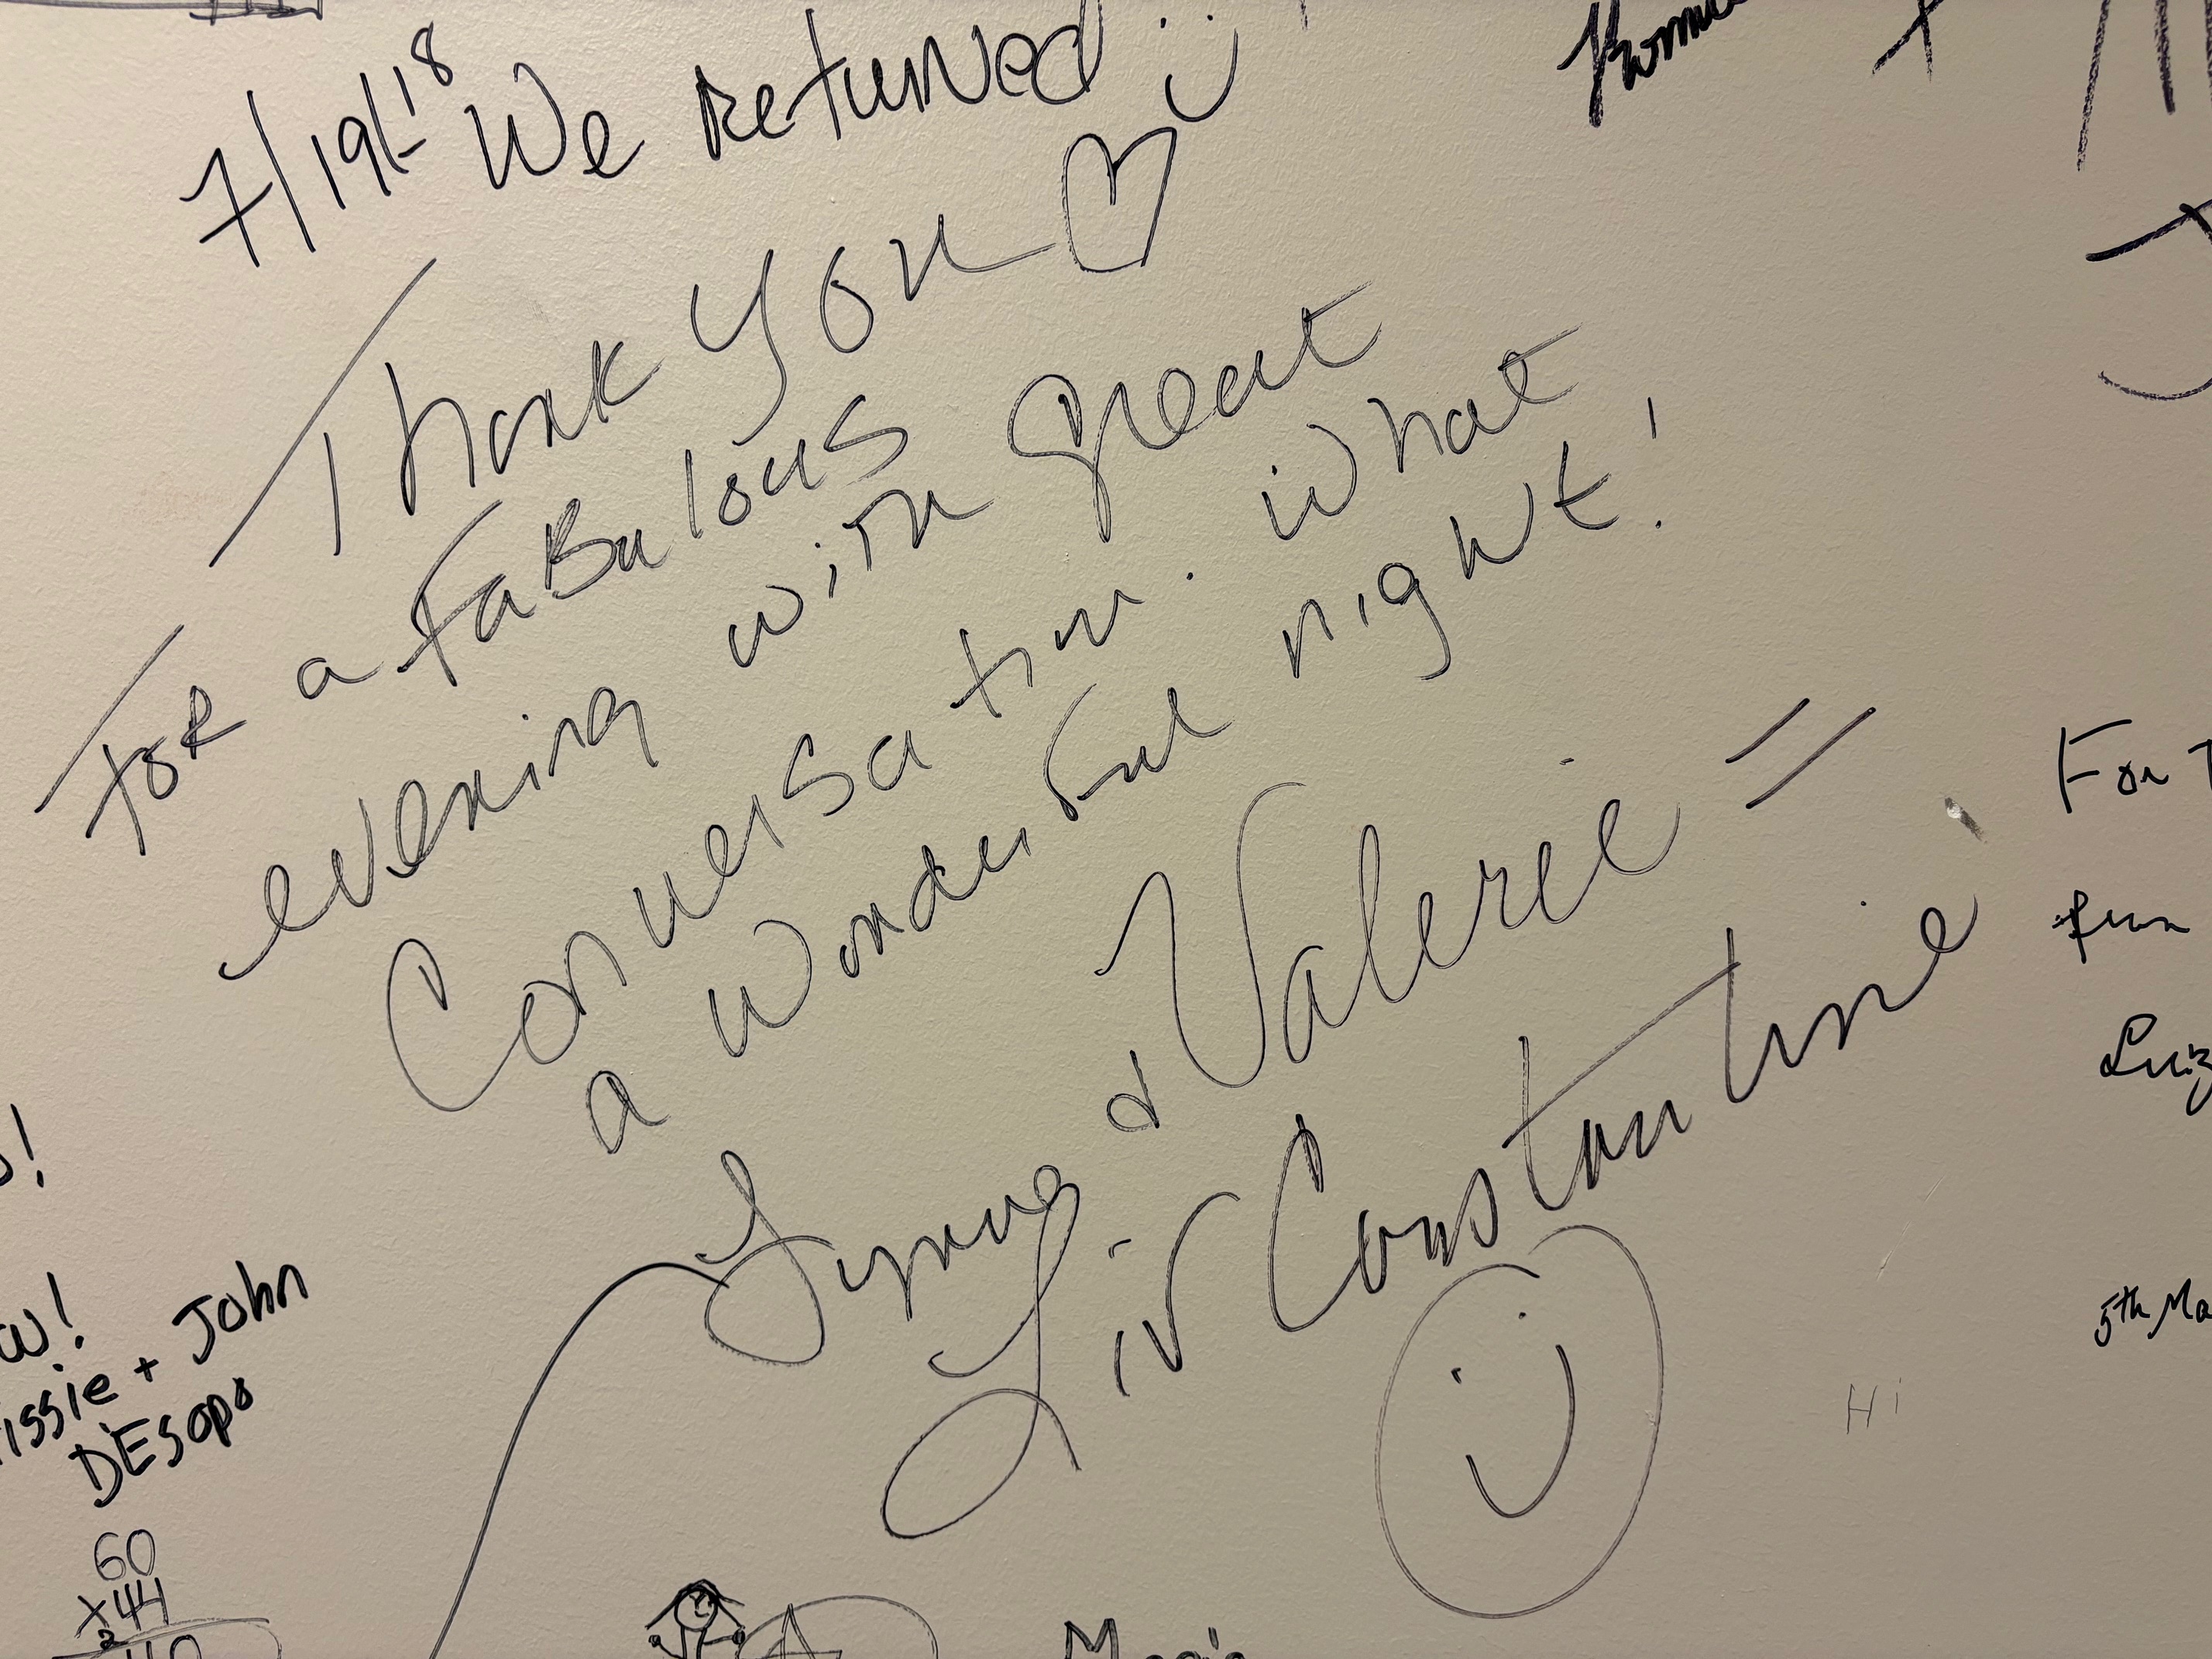 7/19/18 We Returned
Thank you
For a FaBulous
evening with great
Conversation what
a wonderful night!
& Valerie =
Liv Constantine
For
fun
5th
Hi
w!
issie + John
DESopo
60
x44
2